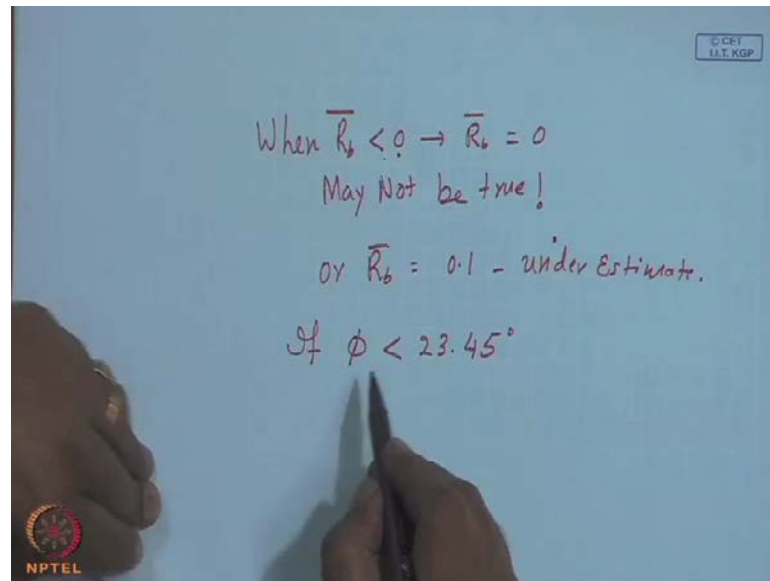 © CET
I.I.T. KGP
When R̅_b < 0 → R̅_b = 0
May Not be true!
or R̅_b = 0.1 - under Estimate.
If ϕ < 23.45°
NPTEL